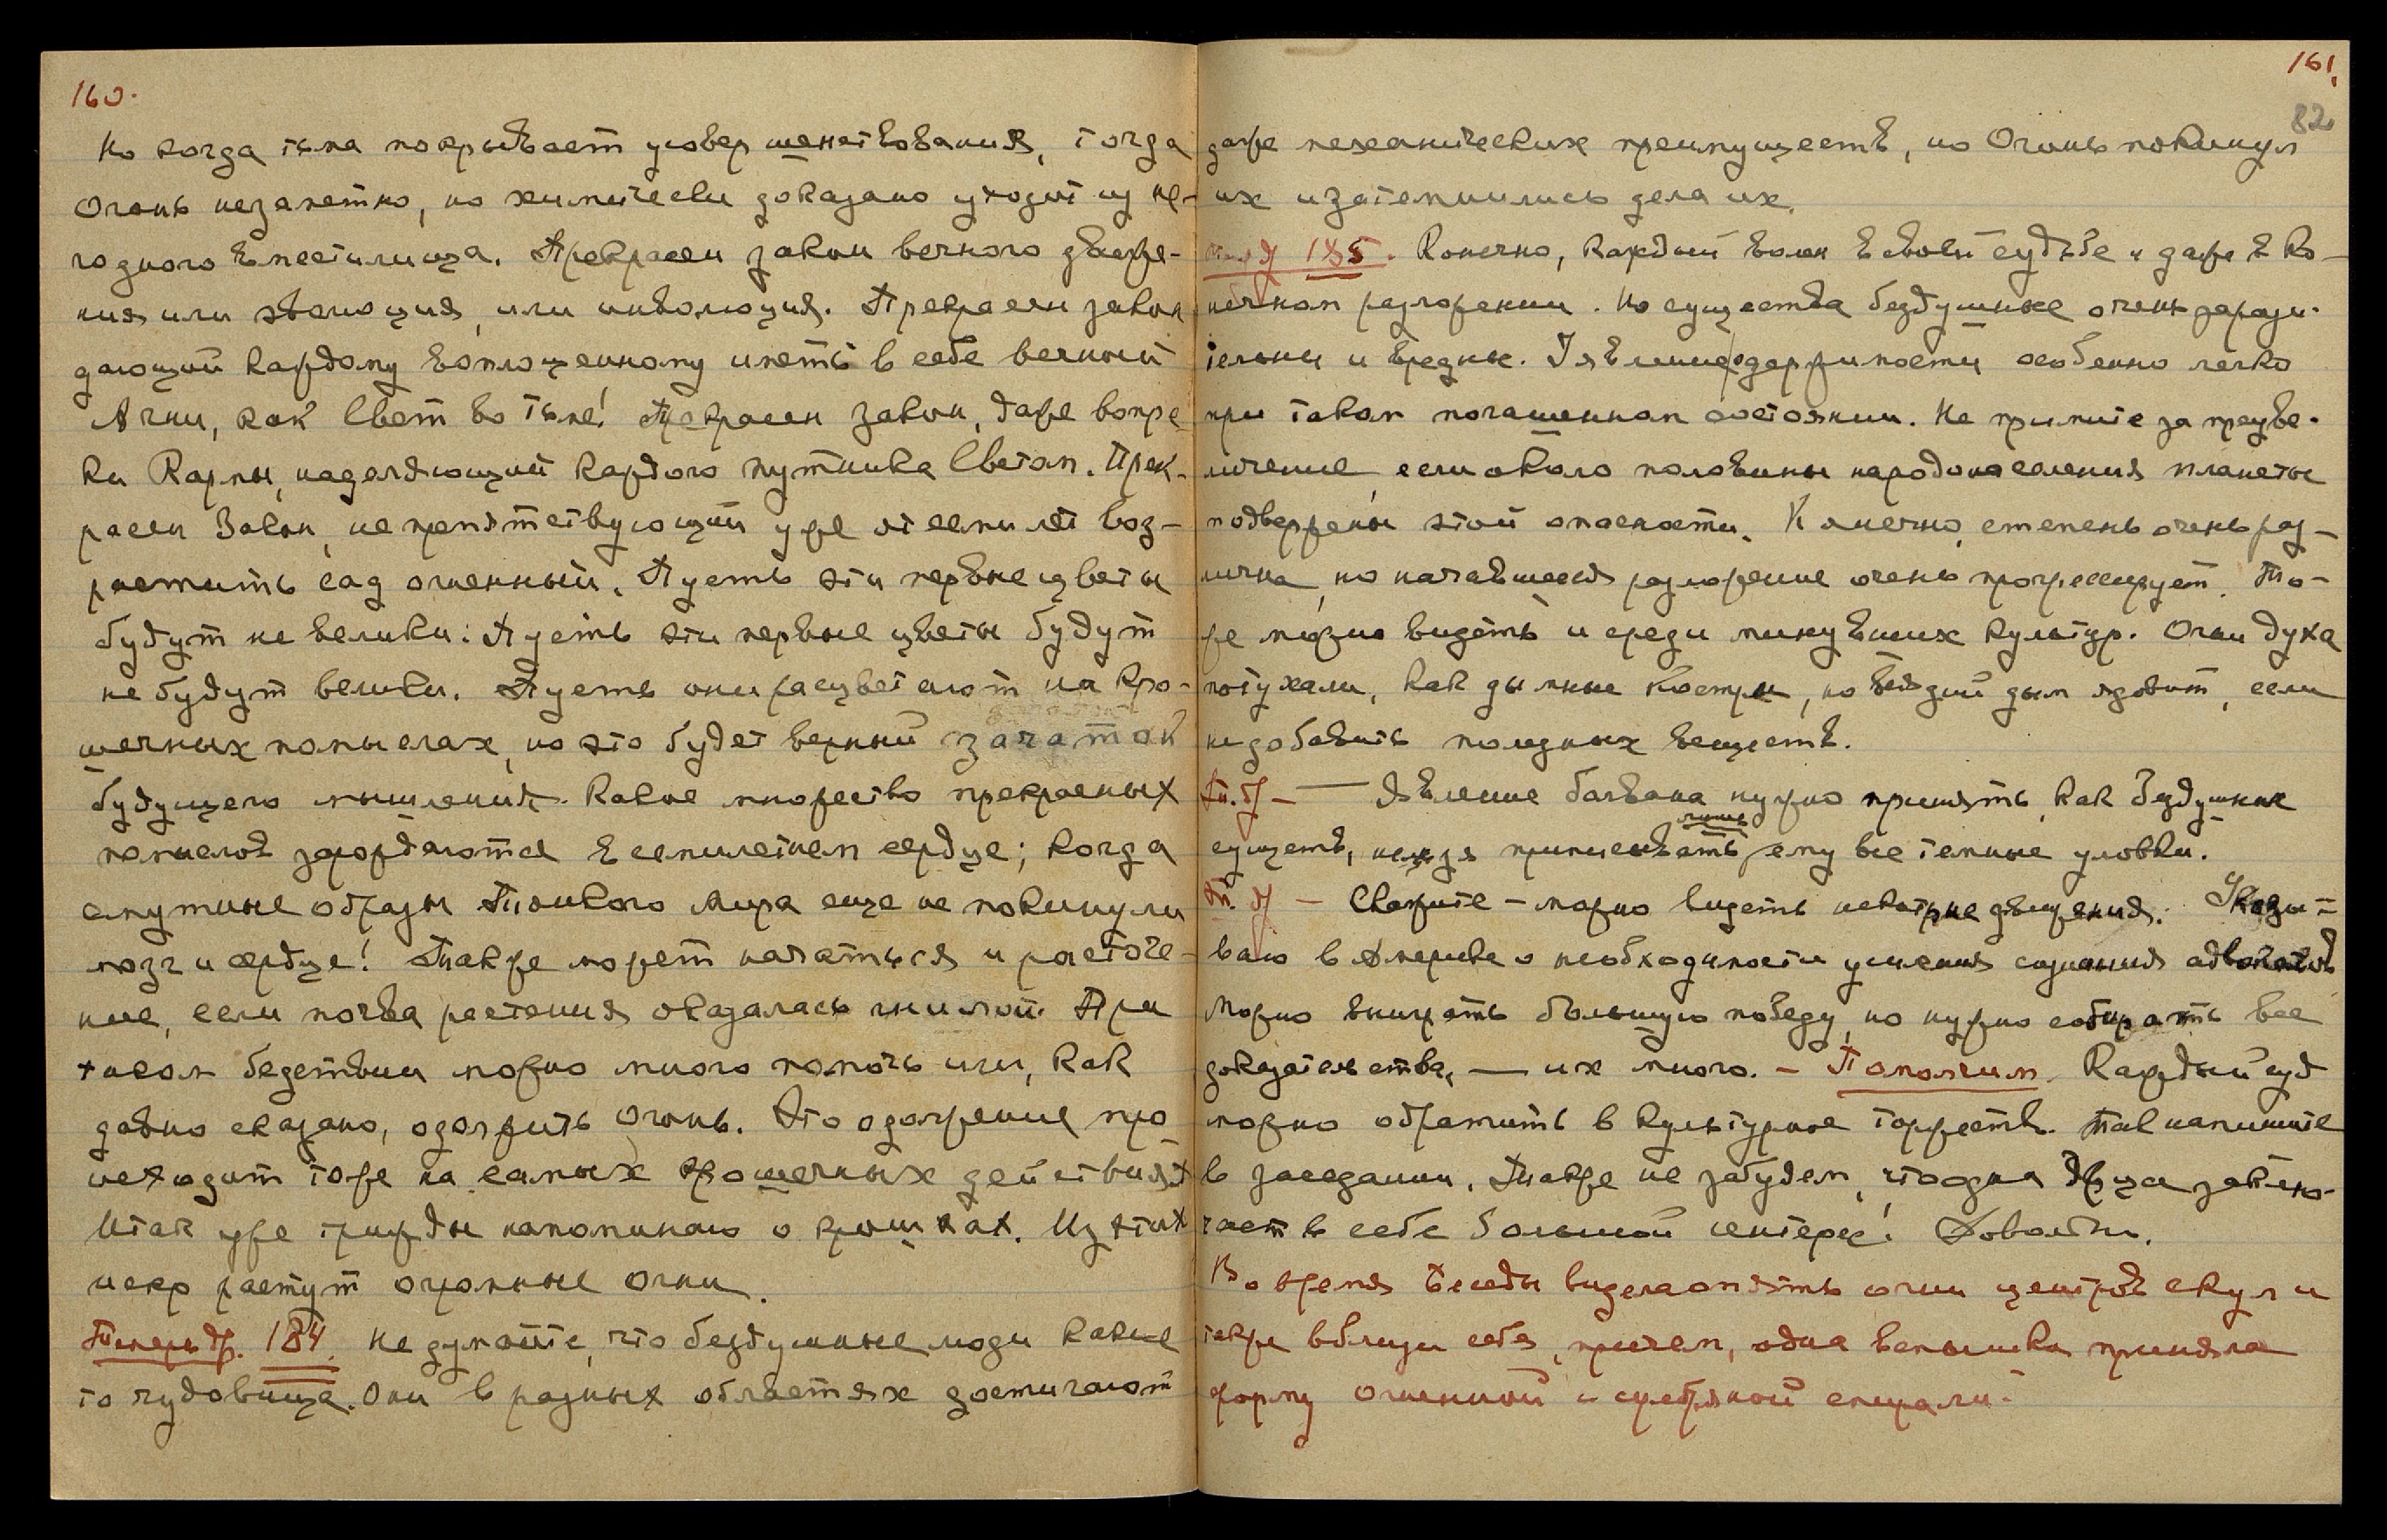 160.
Но когда тьма покрывает усовершенствования, тогда
Огонь незаметно, но химически доказано уходит из не-
годного вместилища. Прекрасен закон вечного движе-
ния или эволюция, или инволюция. Прекрасен закон
дающий каждому воплощенному иметь в себе вечный
Агни, как Свет во тьме! Прекрасен закон, даже вопре
ки Кармы, наделяющий каждого путника Светом. Прек-
расен Закон, не препятствующий уже от семи лет воз-
растить сад огненный. Пусть эти первые цветы
будут не велики: Пусть эти первые цветы будут
не будут велики. Пусть они расцветают на кро-
шечных помыслах, но это будет верный зачаток
будущего мышления. Какое множество прекрасных
помыслов зарождаются в семилетнем сердце; когда
смутные образы Тонкого Мира еще не покинули
мозг и сердце! Также может начаться и расточе-
ние, если почва растения оказалась гнилой. При
таком бедствии можно много помочь или, как
давно сказано, одолжить Огонь. Это одолжение про
исходит тоже на самых крошечных действиях
Итак уже трижды напоминаю о крошках. Из этих
искр растут огромные огни.
Теперь др. 184. Не думайте, что бездушные люди какие
то чудовища. Они в разных областях достигают
161.
82
даже механических преимуществ, но Огонь покинул
их и затемнились дела их.
185. Конечно, каждый волен в своей судьбе и даже в ко-
нечном разложении. Но существа бездушные очень зарази-
тельны и вредны. Явление одержимости особенно легко
при таком погашенном состоянии. Не примите за преуве-
личение, если около половины народонаселения планеты
подвержены этой опасности. Конечно, степень очень раз-
лична, но начавшееся разложение очень прогрессирует. То-
же можно видеть и среди минувших культур. Огни духа
потухали, как дымные костры, но всякий дым ядовит, если
не добавить полезных веществ.
— Явление болвана нужно принять как бездушных
существ, нельзя приписывать лишь ему все темные уловки.
— Скажите — можно видеть некоторые движения. Указы-
ваю в Америке о необходимости усиления сознания адвокатов
Можно выиграть большую победу, но нужно собирать все
доказательства, — их много. — Пополним. Каждый суд
можно обратить в культурное торжество. Так напишите
в заседании. Также не забудем, что одна заклю-
чает в себе большой интерес! Довольно.
Во время Беседы видела опять огни центров скул и
также вблизи себя, причем, одна вспышка приняла
форму огненной и серебряной спирали.